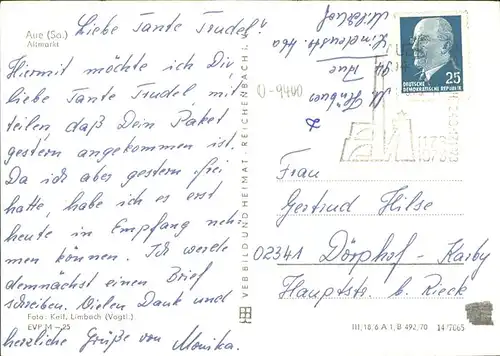 Aue (Sa.)
Altmarkt
Liebe Tante Trudel!
Hiermit möchte ich Dir,
liebe Tante Trudel, mit
teilen, daß Dein Paket
gestern angekommen ist.
Da ich aber gestern frei
hatte, habe ich es erst
heute in Empfang neh-
men können. Ich werde
demnächst einen Brief
schreiben. Vielen Dank und
Foto: Keil, Limbach (Vogtl.)
EVP M -,25
herzliche Grüße von Monika.
VEB BILD UND HEIMAT · REICHENBACH i.
94 Aue
Lindenstr.
O-9400
25
DEUTSCHE
DEMOKRATISCHE REPUBLIK
AUE
Frau
Gertrud Hilse
02341 Dörphof-Karby
Hauptstr. b. Rieck
III/18/6 A 1, B 492/70 14/7065